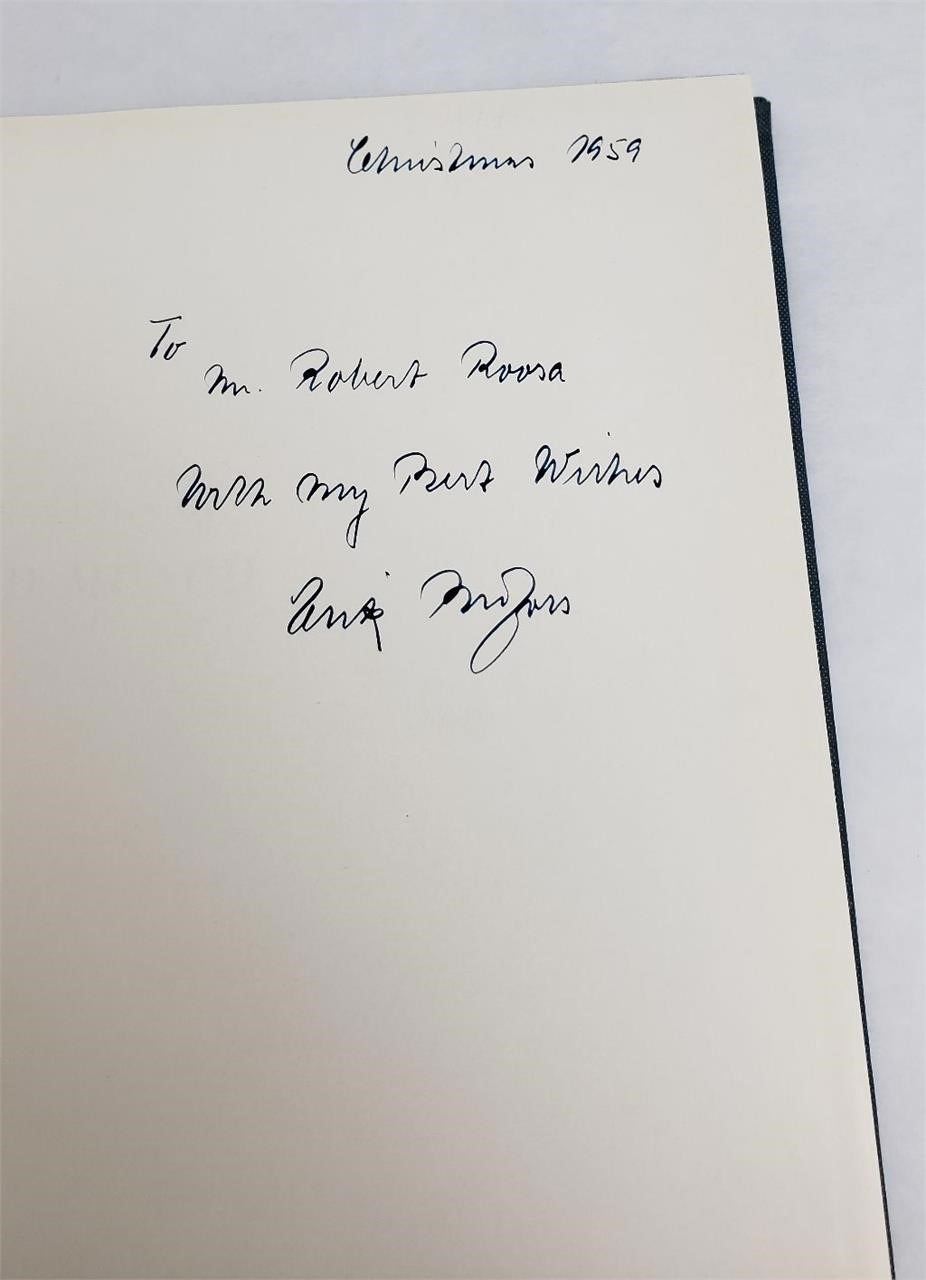 Christmas 1959
To
Mr. Robert Roosa
With my Best Wishes